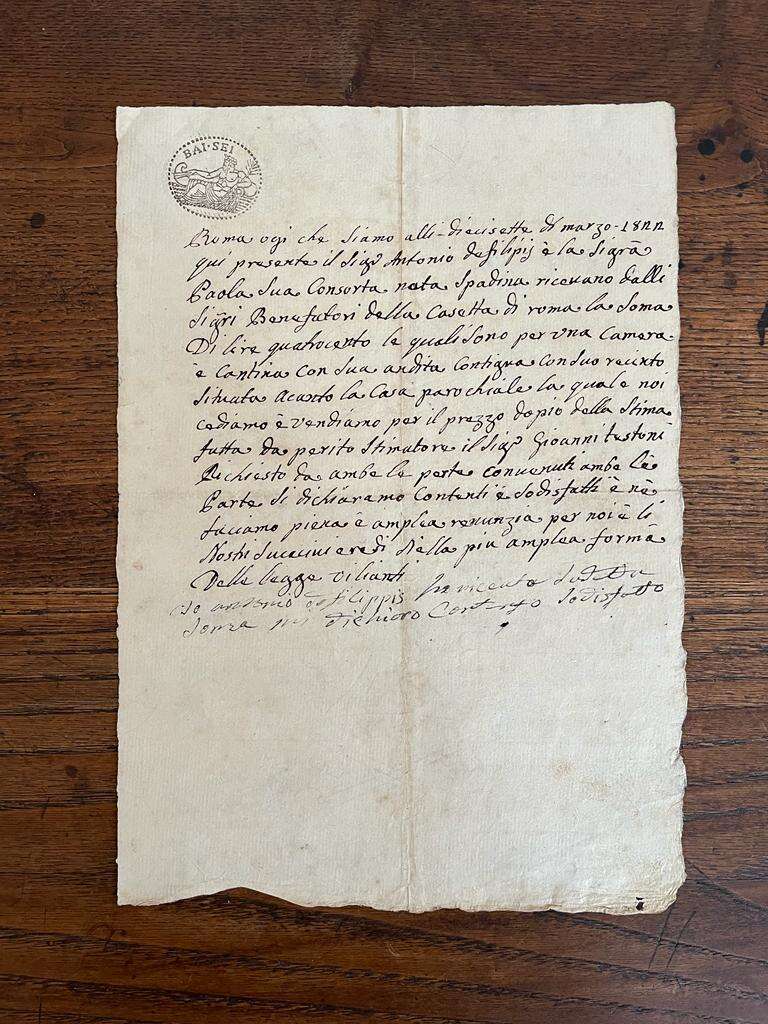 BAI·SEI
Roma ogi che siamo alli-diecisette di marzo-1822
qui presente il Sigr Antonio defilipis è la Sigrã
Paola Sua Consorta nata Spadina ricevano dalli
Sigri Benefatori della Casetta di roma la Soma
Di lire quatrocento le quali Sono per una Camera
è Cantina Con Sua andita Contigua Con Suo recinto
Situata Acanto la Casa parochiale la quale noi
cediamo è vendiamo per il prezzo dopio della Stima
fatta da perito Stimatore il Sigr Gioanni testoni
Richiesto da ambe le parte Convenuti ambe lè
Parte Si dichiaramo Contenti è Sodisfatti è nè
facciamo piena è amplea renunzia per noi è li
Nostri eredi Nella piu amplea formã
Delle legge vilianti
Io antonio defilippis ho riceuto
Soma mi dichiaro Contento Sodisfatto